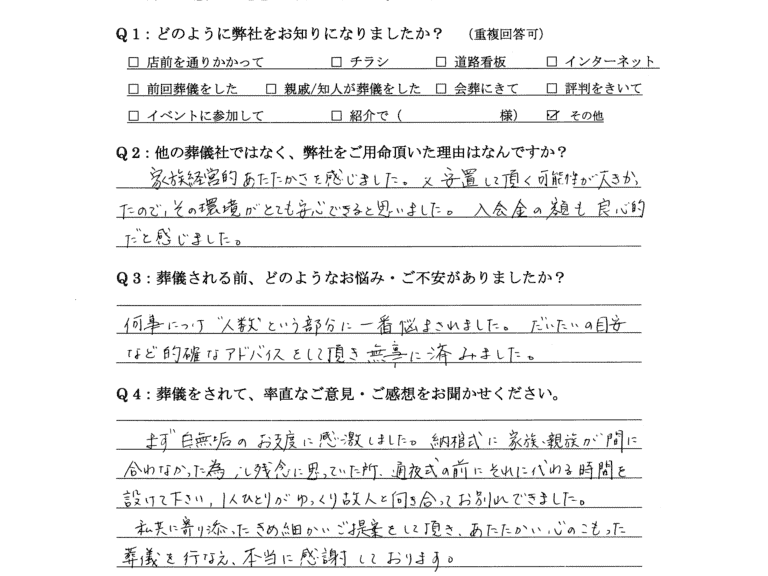 Q1：どのように弊社をお知りになりましたか？　（重複回答可）
□ 店前を通りかかって　□ チラシ　□ 道路看板　□ インターネット
□ 前回葬儀をした　□ 親戚/知人が葬儀をした　□ 会葬にきて　□ 評判をきいて
□ イベントに参加して　□ 紹介で（　　　　　様）　☑ その他
Q2：他の葬儀社ではなく、弊社をご用命頂いた理由はなんですか？
家族経営的あたたかさを感じました。又安置して頂く可能性が大きかっ
たので、その環境がとても安心できると思いました。入会金の額も良心的
だと感じました。
Q3：葬儀される前、どのようなお悩み・ご不安がありましたか？
何事につけ"人数"という部分に一番悩まされました。だいたいの目安
など的確なアドバイスをして頂き無事に済みました。
Q4：葬儀をされて、率直なご意見・ご感想をお聞かせください。
まず白無垢のお支度に感激しました。納棺式に家族、親族が間に
合わなかった為、残念に思っていた所、通夜式の前にそれに代わる時間を
設けて下さい、1人ひとりがゆっくり故人と向き合ってお別れできました。
私共に寄り添ったきめ細かいご提案をして頂き、あたたかい、心のこもった
葬儀を行なえ、本当に感謝しております。